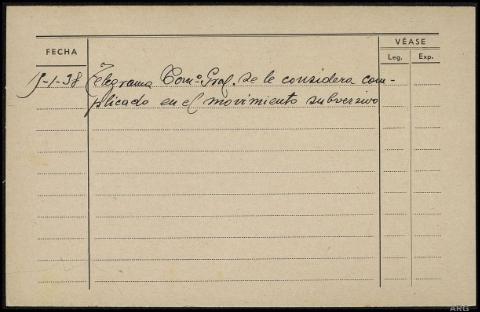 VÉASE
FECHA
Leg. Exp.
5-1-38 Telegrama Com.º Gral. se le considera com-
plicado en el movimiento subversivo
ARG